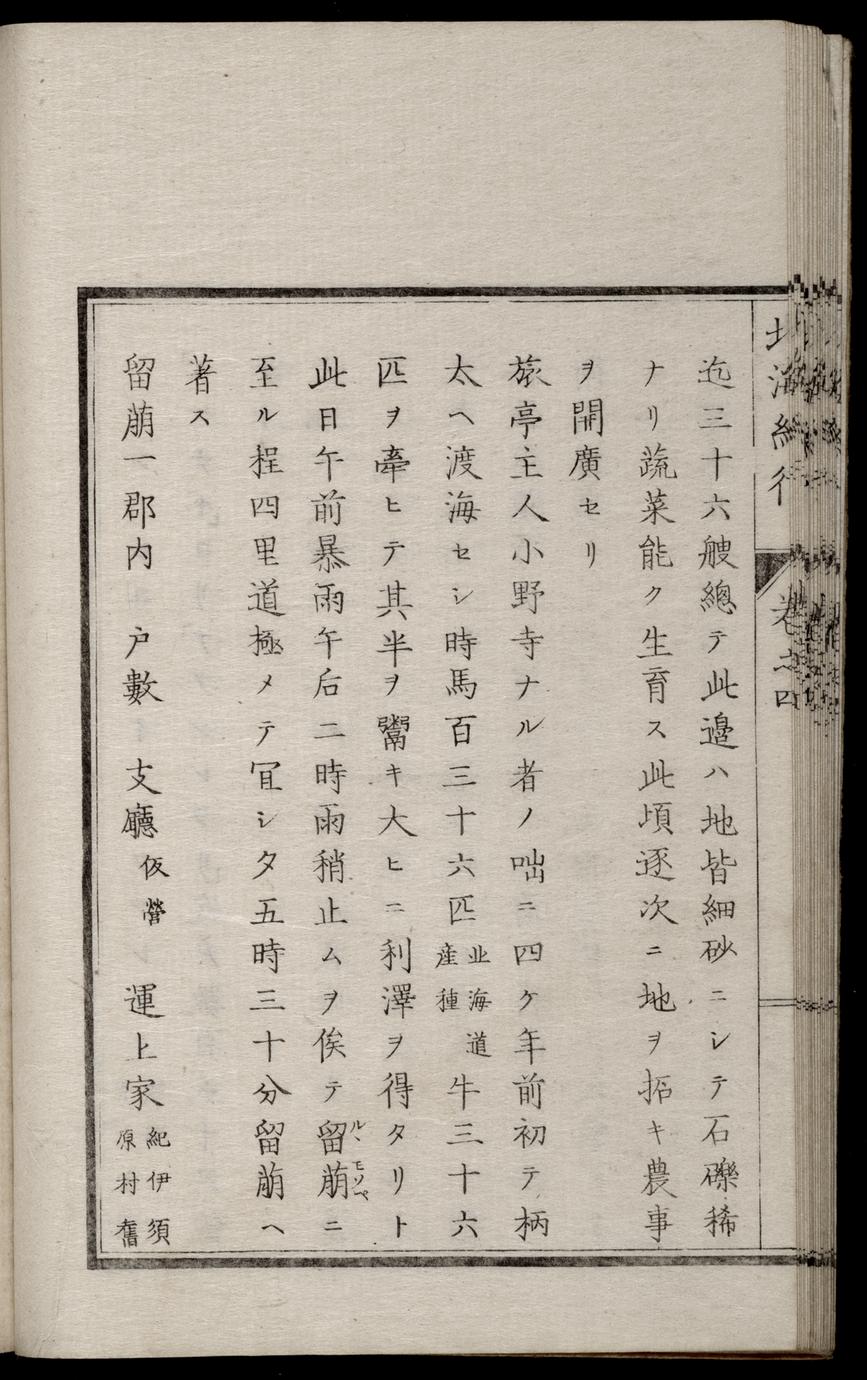 北海紀行 巻之四
迄三十六艘總テ此邉ハ地皆細砂ニシテ石礫稀
ナリ蔬菜能ク生育ス此頃逐次ニ地ヲ拓キ農事
ヲ開廣セリ
旅亭主人小野寺ナル者ノ咄ニ四ケ年前初テ柄
太ヘ渡海セシ時馬百三十六匹北海道産種牛三十六
匹ヲ牽ヒテ其半ヲ鬻キ大ヒニ利澤ヲ得タリト
此日午前暴雨午后二時雨稍止ムヲ俟テ留萠ニ
至ル程四里道極メテ冝シ夕五時三十分留萠ヘ
著ス
留萠一郡内 戸數 支廳仮營 運上家紀伊須原村舊